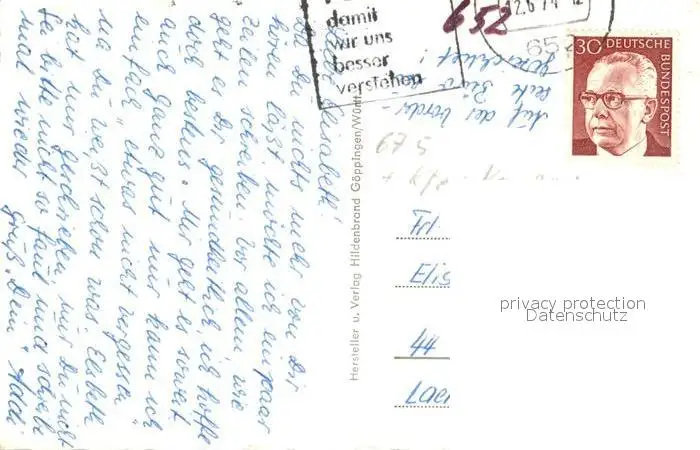 Liebe Elisabeth!
Da Du nichts mehr von Dir
hören läßt möchte ich ein paar
Zeilen schreiben. Vor allem wie
geht es Dir gesundheitlich ich hoffe
doch bestens. Mir geht es soweit
auch ganz gut nur kann ich
einfach "etwas nicht vergessen"
na Du weißt schon was. Elsbeth
hat mir geschrieben nur Du nicht
Sei bitte nicht so faul und schreib
mal wieder Gruß. Dein
Hersteller u. Verlag Hildenbrand Göppingen/Württ.
damit
wir uns
besser
verstehen
652
12.6.74-12
30 DEUTSCHE
BUNDESPOST
Auf der Vorder-
seite
675
Frl.
Elis
44
Laer
privacy protection
Datenschutz